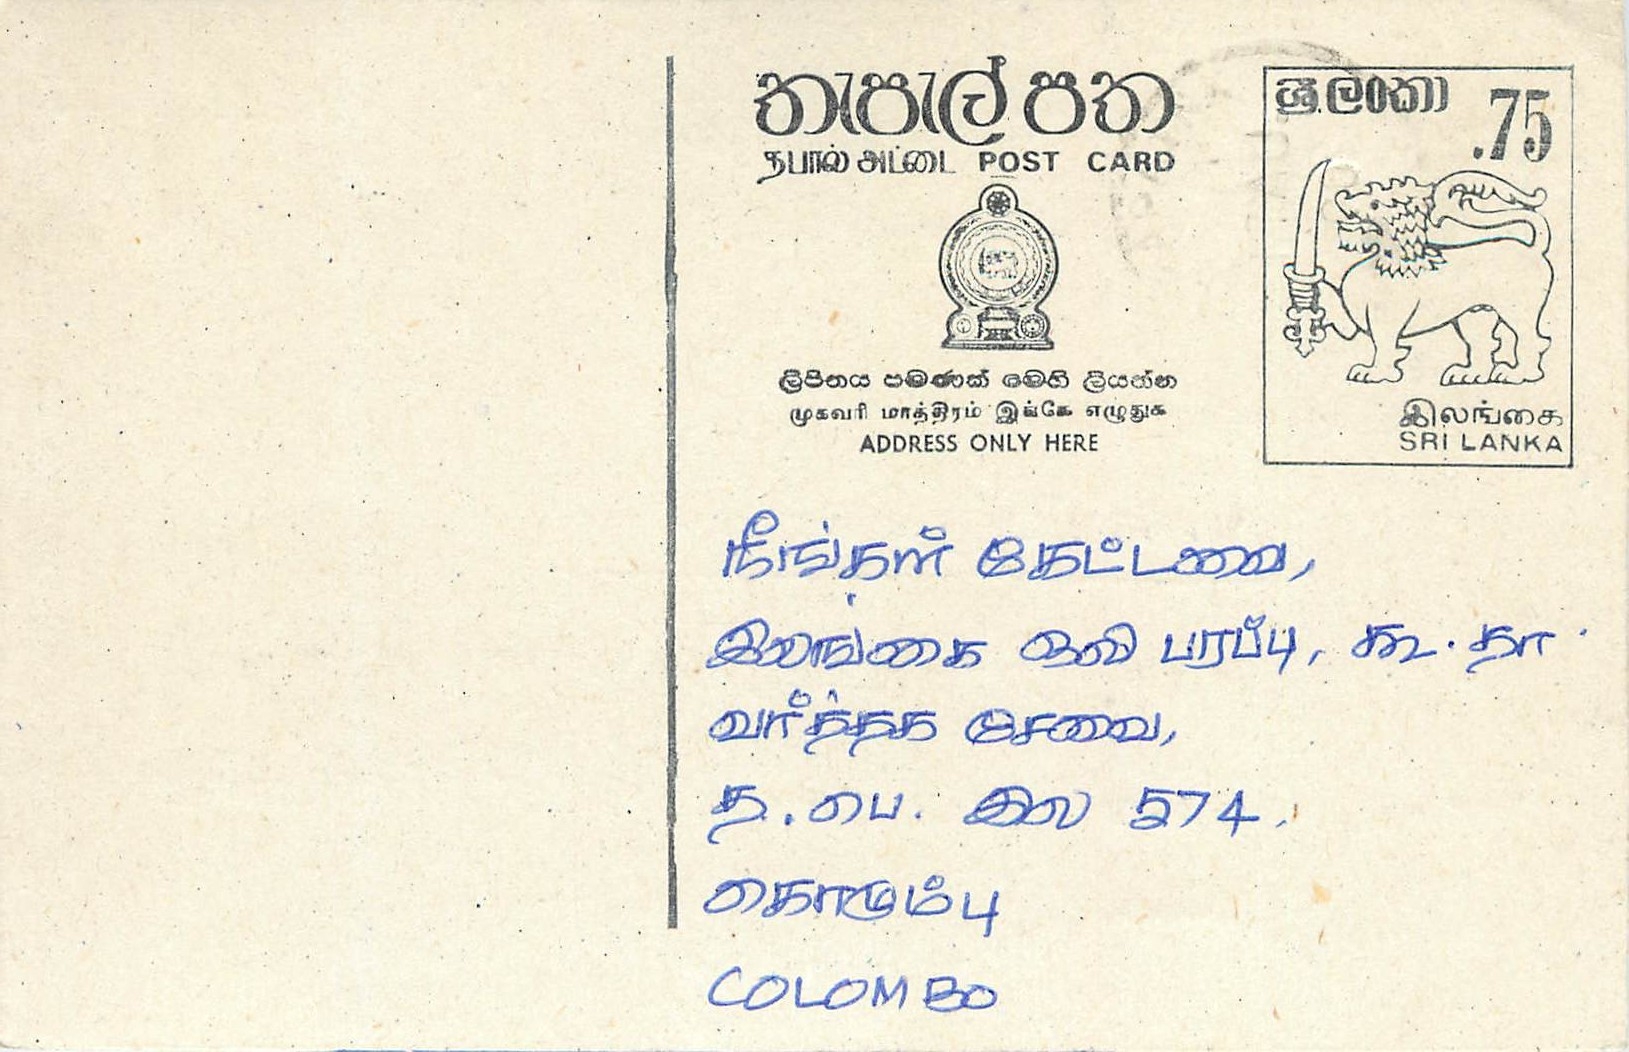 තැපැල් පත
தபால் அட்டை POST CARD
ශ්‍රී ලංකා
.75
இலங்கை
SRI LANKA
ලිපිනය පමණක් මෙහි ලියන්න
முகவரி மாத்திரம் இங்கே எழுதுக
ADDRESS ONLY HERE
நீங்கள் கேட்டவை,
இலங்கை ஒலி பரப்பு, கூ. தா.
வர்த்தக சேவை,
த. பெ. இல 574,
கொழும்பு
COLOMBO